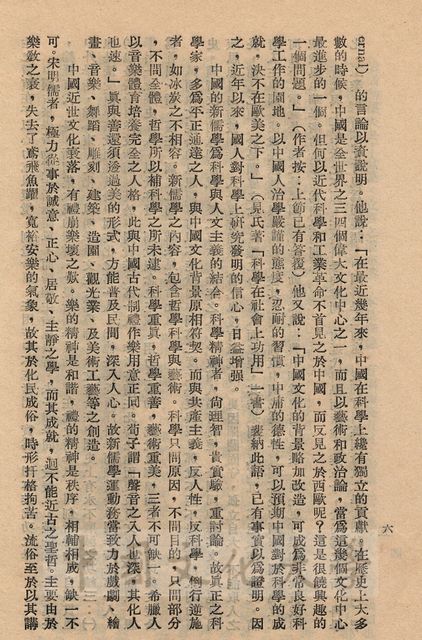 ernal) 的言論以資說明。他說：「在最近幾年來，中國在科學上纔有獨立的貢獻。在歷史上大多
數的時候，中國是全世界之三四個偉大文化中心之一，而且以藝術和政治論，當為這幾個文化中心
最進步的一個。但何以近代科學和工業革命不首見之於中國，而反見之於西歐呢？這是很饒興趣的
一個問題。」（作者按：上節已有答復）他又說：「中國文化的背景略加改造，可成為非常良好科
學工作的園地。以中國人治學嚴謹的態度，忍耐的習慣，中庸的德性，可以預期中國對於科學的成
就，決不在歐美之下。」（見氏著「科學在社會上功用」一書）裴納此語，已有事實以為證明。因
之，近年以來，國人對科學上研究發明的信心，日益增強。
中國的新儒學為科學與人文主義的結合。科學精神者，尚理智，貴實驗，重討論。故真正之科
學家，多為平正通達之人，與中國文化背景原相符契。而與共產主義，反人性，反科學，倒行逆施
者，如冰炭之不相容。新儒學之內容，包含哲學科學與藝術。科學只問原因，不問目的，只問部分
，不問全體，哲學所以補科學之所未逮。科學重真，哲學重善，藝術重美，三者不可缺一。希臘人
以音樂體育培養完全之人格，此與中國古代制禮作樂用意正同。荀子謂「聲音之入人也深，其化人
也速。」真與善還須透過美的形式，方能普及民間，深入人心。故新儒學運動務當致力於戲劇、繪
畫、音樂、舞蹈、雕刻、建築、造園、觀光業、及美術工藝等之創造。
中國近世文化衰落，有禮崩樂壞之歎。樂的精神是和諧，禮的精神是秩序，相輔相成，缺一不
可。宋明儒者，極力從事於誠意、正心、居敬、主靜之學，而其成就，迥不能近古之聖哲。主要由於
樂教之衰，失去了鳶飛魚躍，寬裕安樂的氣象，故其於化民成俗，時形扞格拘苦。流俗至於以其講
六